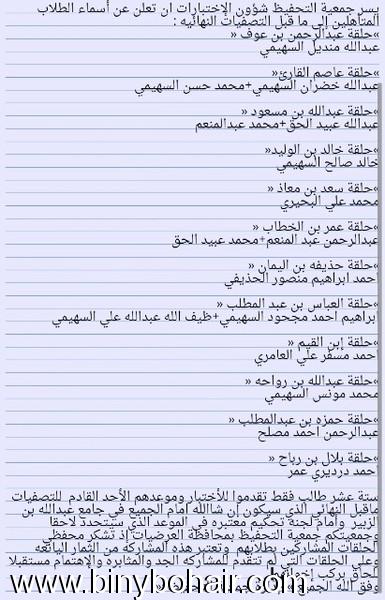 يسر جمعية التحفيظ شؤون الإختبارات ان تعلن عن أسماء الطلاب
المتاهلين إلى ما قبل التصفيات النهائيه :
»حلقة عبدالرحمن بن عوف «
عبدالله منديل السهيمي
»حلقة عاصم القارئ«
عبدالله خضران السهيمي+محمد حسن السهيمي
»حلقة عبدالله بن مسعود «
عبدالله عبيد الحق+محمد عبدالمنعم
»حلقة خالد بن الوليد«
خالد صالح السهيمي
»حلقة سعد بن معاذ «
محمد علي البحيري
»حلقة عمر بن الخطاب «
عبدالرحمن عبد المنعم+محمد عبيد الحق
»حلقة حذيفه بن اليمان «
احمد ابراهيم منصور الحذيفي
»حلقة العباس بن عبد المطلب «
ابراهيم احمد مجحود السهيمي+ظيف الله عبدالله علي السهيمي
»حلقة إبن القيم «
احمد مسفر علي العامري
»حلقة عبدالله بن رواحه «
محمد مونس السهيمي
»حلقة حمزه بن عبدالمطلب «
عبدالرحمن احمد مصلح
»حلقة بلال بن رباح «
احمد درديري عمر
ستة عشر طالب فقط تقدموا للأختبار وموعدهم الأحد القادم للتصفيات
ماقبل النهائي الذي سيكون إن شاالله امام الجميع في جامع عبدالله بن
الزبير وأمام لجنة تحكيم معتبره في الموعد الذي سيتحدد لاحقا
وجمعيتكم جمعية التحفيظ بمحافظة العرضيات إذ تشكر محفظي
الحلقات المشاركين بطلابهم وتعتبر هذه المشاركه من الثمار اليانعه
وعلى الحلقات التي لم تتقدم للمشاركه الجد والمثابره والإهتمام مستقبلا
لللحاق بركب
وفق الله الجميع
www.binybohair.com